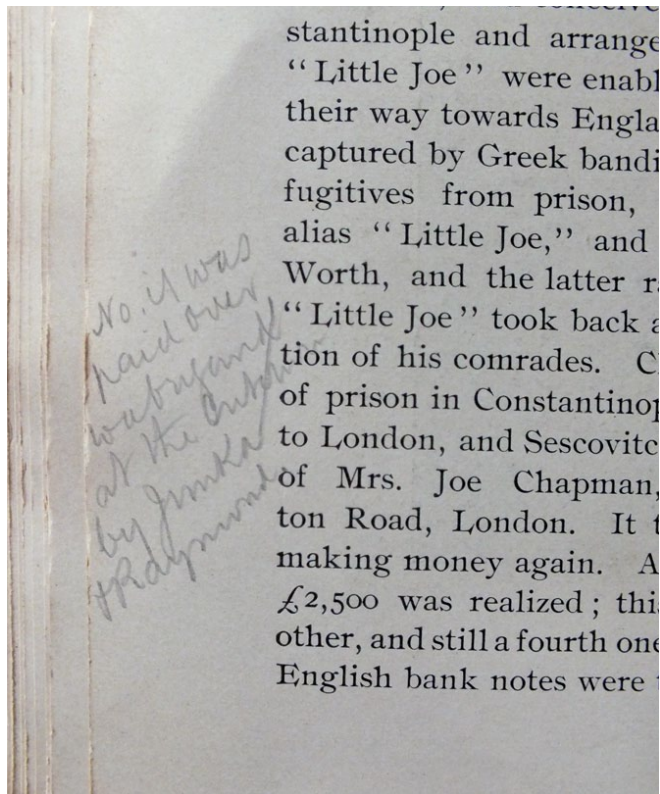 stantinople and arrange
“Little Joe” were enabl
their way towards Engla
captured by Greek bandi
fugitives from prison,
alias “Little Joe,” and
Worth, and the latter ra
“Little Joe” took back a
tion of his comrades. C
of prison in Constantinop
to London, and Sescovitc
of Mrs. Joe Chapman,
ton Road, London. It t
making money again. A
£2,500 was realized; this
other, and still a fourth one
English bank notes were t
No. it was
paid over
at the
by
& Raymond